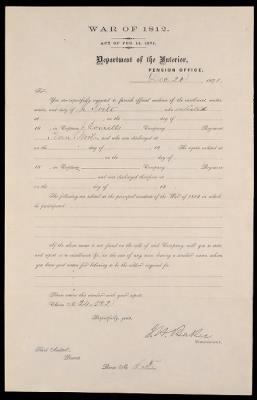 WAR OF 1812.
ACT OF FEB. 14, 1871.
Department of the Interior,
PENSION OFFICE,
Dec 20 1871
SIR:
You are respectfully requested to furnish official evidence of the enlistment, muster
service, and duty of who enlisted
at , on the day of
18 in Captain Company Regiment
and who was discharged at
on the day of , 18 He again enlisted at
on the day of
18 in Captain Company, Regiment
and was discharged therefrom at
on the day of , 18
The following are stated as the principal incidents of the War of 1812 in which
he participated:
If the above name is not found on the rolls of said Company, you will so state,
and report as to enrollments for, in the case of any man bearing a similar name whom
you have good reason for believing to be the soldier inquired for.
Please return this circular with your report.
Claim No. 24,592
Respectfully, yours,
J. H. Baker
Commissioner.
Third Auditor,
Present.